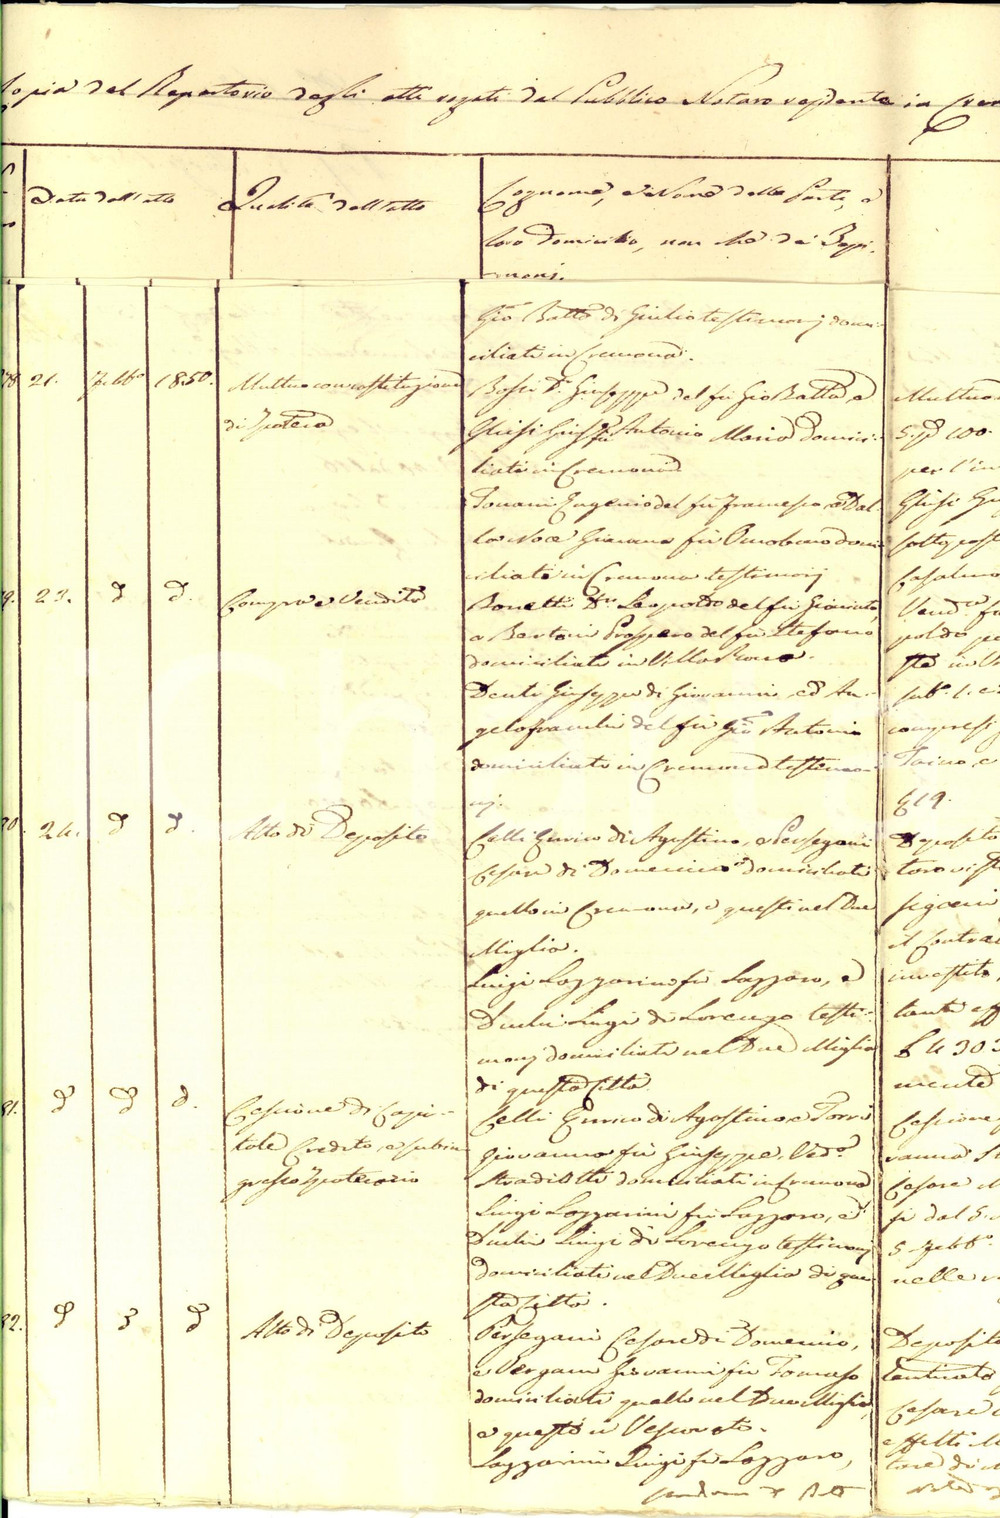 Copia del Repertorio degli atti rogati dal Pubblico Notaro residente in Crem
Data dell'atto
Qualità dell'atto
Cognome, e Nome delle Parti, e
loro domicilio, non che dei Testi-
moni.
Gio Batta di Giulio testimonj domi-
ciliati in Cremona.
78 21. Febb.º 1850.
Mutuo con costituzione
di Ipoteca
Bossi D. Giuseppe del fu Gio Batta, e
Ghisi Gius.e fu Antonio Maria domici-
liati in Cremona
Eugenio del fu Francesco e Dal-
la Noce Giovanni fu Omobono domi-
ciliati in Cremona testimonj
Mutuo
100.
per l'in
Ghisi Gi
sottopost
Casalma
79. 23. d d.
Compra e Vendita
Bonetti D.r Leopoldo del fu
e Bertoni Prospero del fu Stefano
domiciliati in Villa Rocca.
Denti Giuseppe di Giovanni, ed An-
gelo del fu Gio Antonio
domiciliati in Cremona testimo-
nj.
Vend.ta fa
poldo pe
sta in Vi
sub.º 1. e 2
compresi
Torino, e
£ 19.
80. 24. d d.
Atto di Deposito
Celli Enrico di Agostino, e Persegani
Cesare di Domenico domiciliati
quello in Cremona, e questi nel Due
Miglia.
Luigi Lazzarini fu Lazzaro, e
Luigi di Lorenzo testi-
monj domiciliati nel Due Miglia
di questa Città.
Deposito
tore
segani
il Contra
investito,
tante eff
£ 4303
mente
81. d d d.
Cessione di Capi-
tale Credito, e subin
gresso Ipotecario
Celli Enrico di Agostino e Torri
Giovanna fu Giuseppe, Ved.ª
Stradiotti domiciliati in Cremona
Luigi Lazzarini fu Lazzaro, e
Luigi di Lorenzo testimonj
domiciliati nel Due Miglia di que
sta Città.
Cessione
vanna St
Cesare M
si dal
5 Febb.º
nelle
82. d d d
Atto di Deposito
Persegani Cesare di Domenico,
e Vergani Giovanni fu Tomaso
domiciliati quello nel Due Miglia,
e questo in Vescovato.
Lazzarini Luigi fu Lazzaro,
Deposito
tenticato
Cesare
effetti M
tore di